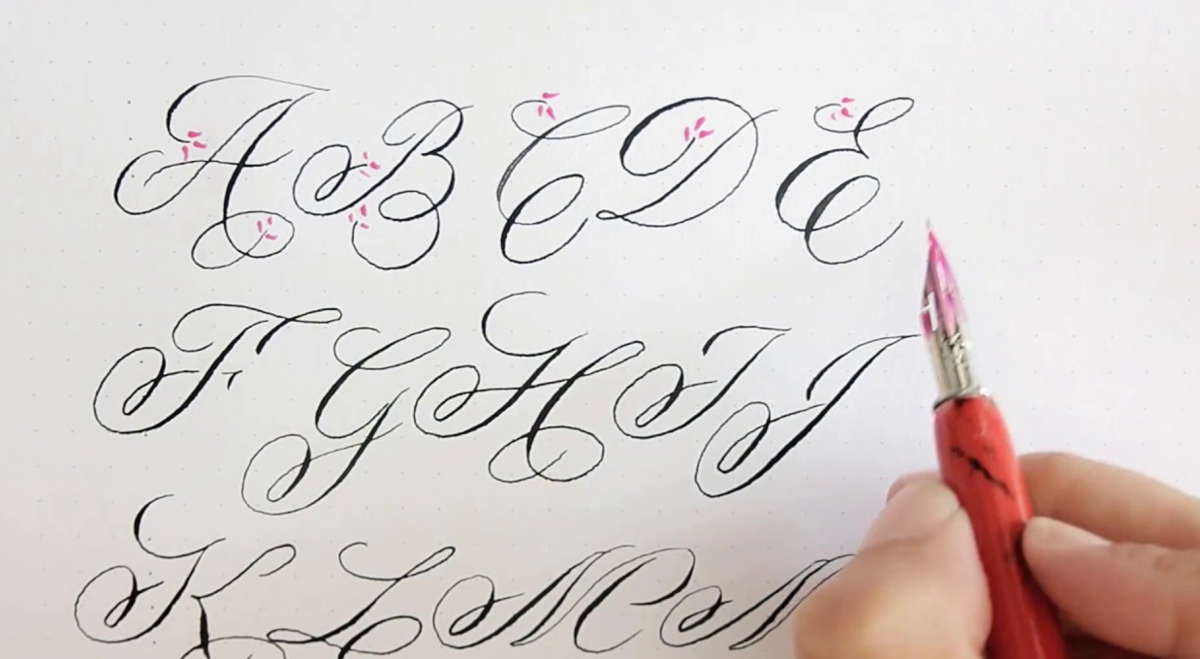 A B C D E
F G H I J
K L M N